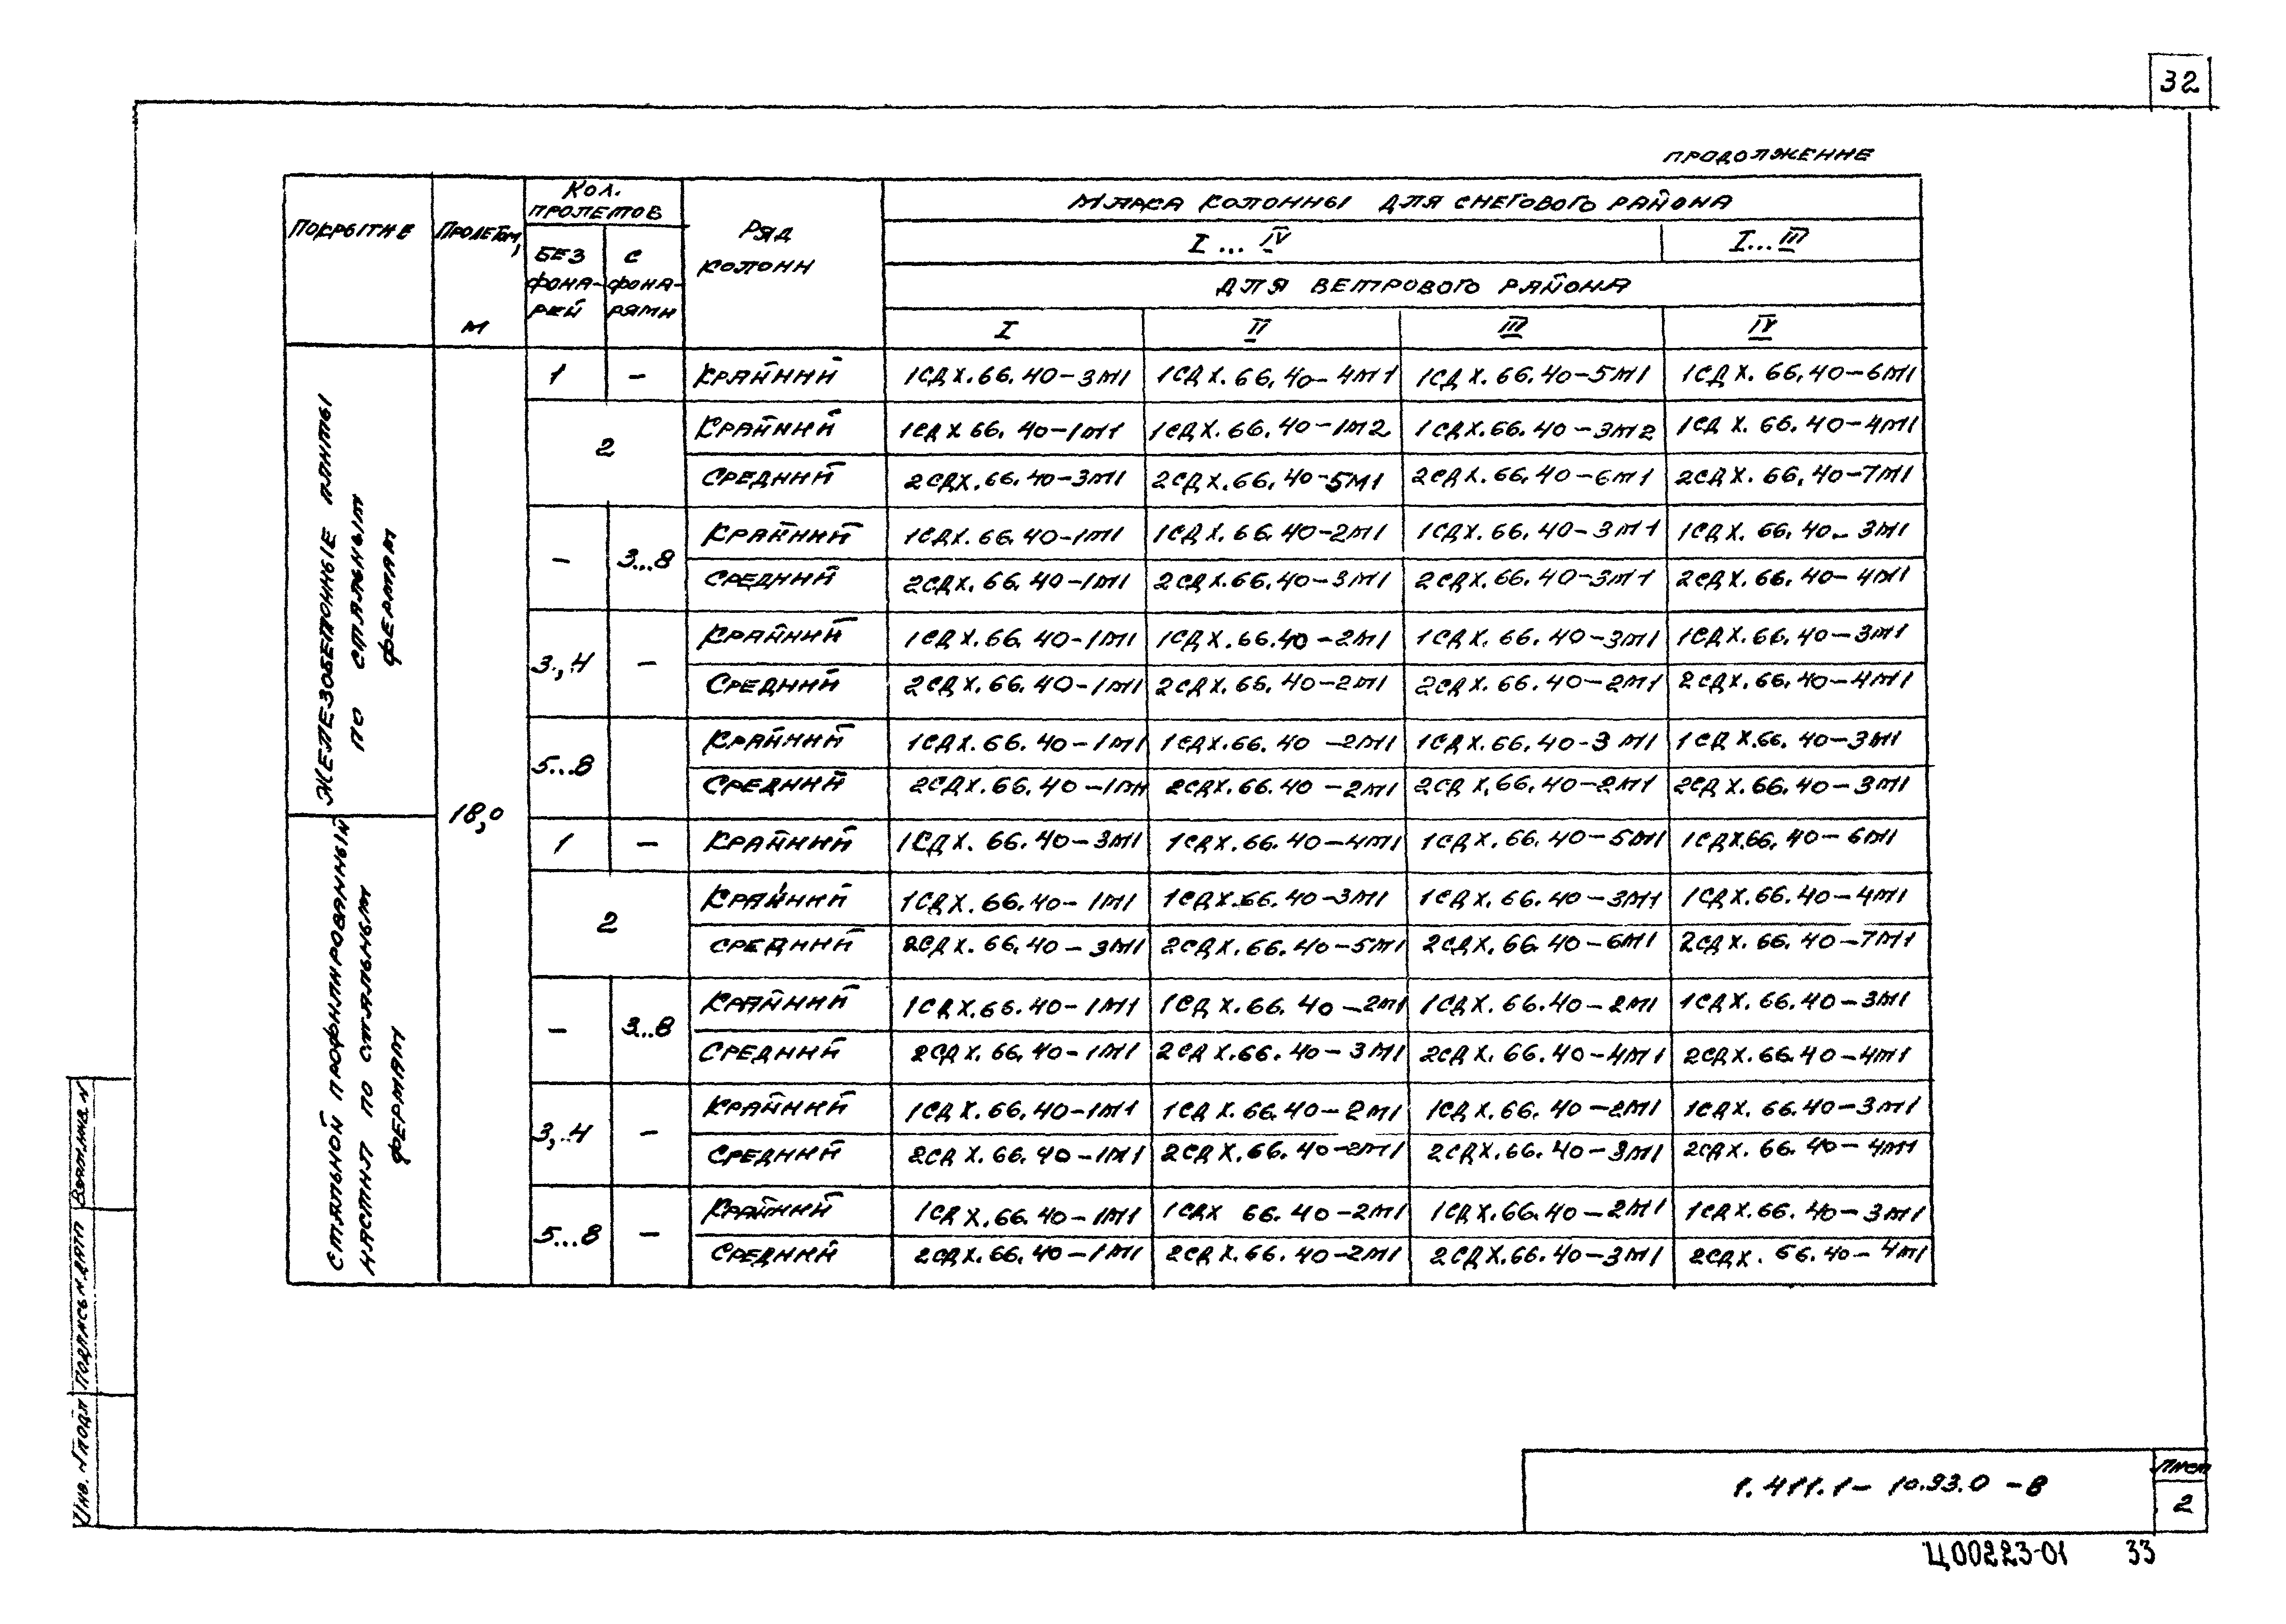 32
ПРОДОЛЖЕНИЕ
ПОКРЫТИЕ
ПРОЛЕТОМ,
М
КОЛ.
ПРОЛЕТОВ
БЕЗ
ФОНА-
РЕЙ
С
ФОНА-
РЯМИ
РЯД
КОЛОНН
МАРКА КОЛОННЫ ДЛЯ СНЕГОВОГО РАЙОНА
I ... IV
I...III
ДЛЯ ВЕТРОВОГО РАЙОНА
I II III IV
ЖЕЛЕЗОБЕТОННЫЕ ПЛИТЫ
ПО СТАЛЬНЫМ
ФЕРМАМ
18,0
1 – КРАЙНИЙ 1СДХ.66.40-3М1 1СДХ.66.40-4М1 1СДХ.66.40-5М1 1СДХ.66.40-6М1
2
КРАЙНИЙ 1СДХ 66.40-1М1 1СДХ.66.40-1М2 1СДХ.66.40-3М2 1СДХ.66.40-4М1
СРЕДНИЙ 2СДХ.66.40-3М1 2СДХ.66.40-5М1 2СДХ.66.40-6М1 2СДХ.66.40-7М1
– 3...8
КРАЙНИЙ 1СДХ.66.40-1М1 1СДХ.66.40-2М1 1СДХ.66.40-3М1 1СДХ.66.40-3М1
СРЕДНИЙ 2СДХ.66.40-1М1 2СДХ.66.40-3М1 2СДХ.66.40-3М1 2СДХ.66.40-4М1
3,,4 –
КРАЙНИЙ 1СДХ.66.40-1М1 1СДХ.66.40-2М1 1СДХ.66.40-3М1 1СДХ.66.40-3М1
СРЕДНИЙ 2СДХ.66.40-1М1 2СДХ.66.40-2М1 2СДХ.66.40-2М1 2СДХ.66.40-4М1
5...8
КРАЙНИЙ 1СДХ.66.40-1М1 1СДХ.66.40-2М1 1СДХ.66.40-3М1 1СДХ.66.40-3М1
СРЕДНИЙ 2СДХ.66.40-1М1 2СДХ.66.40-2М1 2СДХ.66.40-2М1 2СДХ.66.40-3М1
СТАЛЬНОЙ ПРОФИЛИРОВАННЫЙ
НАСТИЛ ПО СТАЛЬНЫМ
ФЕРМАМ
1 – КРАЙНИЙ 1СДХ.66.40-3М1 1СДХ.66.40-4М1 1СДХ.66.40-5М1 1СДХ.66.40-6М1
2
КРАЙНИЙ 1СДХ.66.40-1М1 1СДХ.66.40-3М1 1СДХ.66.40-3М1 1СДХ.66.40-4М1
СРЕДНИЙ 2СДХ.66.40-3М1 2СДХ.66.40-5М1 2СДХ.66.40-6М1 2СДХ.66.40-7М1
– 3...8
КРАЙНИЙ 1СДХ.66.40-1М1 1СДХ.66.40-2М1 1СДХ.66.40-2М1 1СДХ.66.40-3М1
СРЕДНИЙ 2СДХ.66.40-1М1 2СДХ.66.40-3М1 2СДХ.66.40-4М1 2СДХ.66.40-4М1
3,.4 –
КРАЙНИЙ 1СДХ.66.40-1М1 1СДХ.66.40-2М1 1СДХ.66.40-2М1 1СДХ.66.40-3М1
СРЕДНИЙ 2СДХ.66.40-1М1 2СДХ.66.40-2М1 2СДХ.66.40-3М1 2СДХ.66.40-4М1
5...8 –
КРАЙНИЙ 1СДХ.66.40-1М1 1СДХ 66.40-2М1 1СДХ.66.40-2М1 1СДХ.66.40-3М1
СРЕДНИЙ 2СДХ.66.40-1М1 2СДХ.66.40-2М1 2СДХ.66.40-3М1 2СДХ.66.40-4М1
Взам.инв.N
Подпись и дата
Инв. N подл
1.411.1-10.93.0-8
Лист
2
Ц00223-01 33